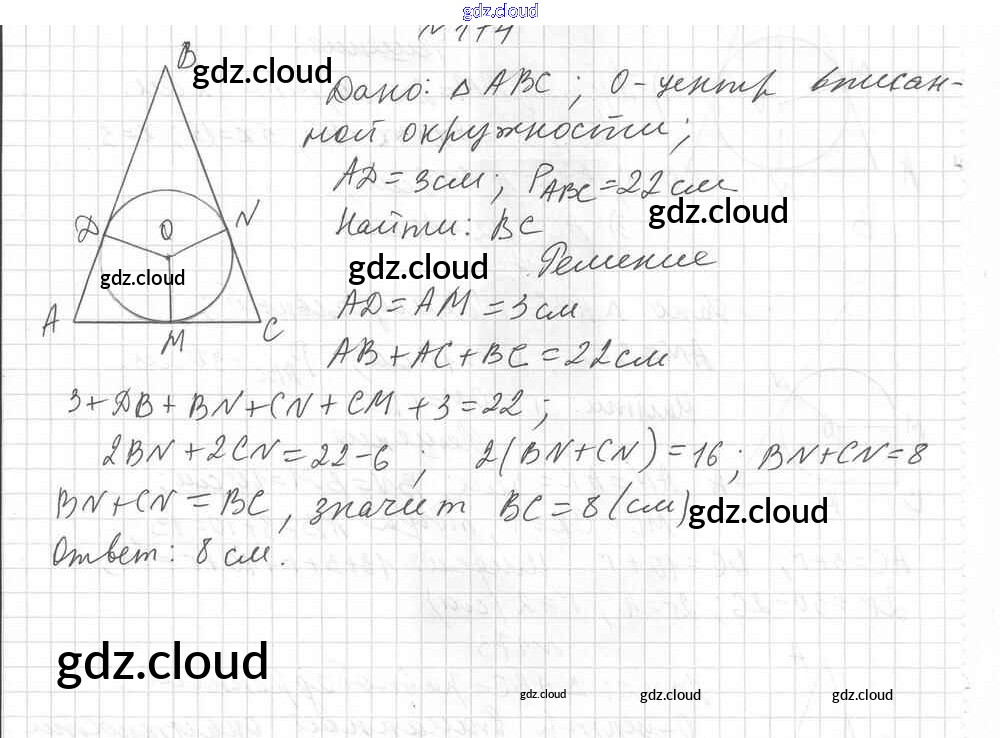 gdz.cloud
№ 174
B
gdz.cloud
Дано: △ ABC ; O - центр вписан-
ной окружности ;
AD = 3 см ; P ABC = 22 см
gdz.cloud
Найти: BC
D O N
gdz.cloud
gdz.cloud Решение
AD = AM = 3 см
A M C
AB + AC + BC = 22 см
3 + DB + BN + CN + CM + 3 = 22 ;
2BN + 2CN = 22 - 6 ; 2(BN + CN) = 16 ; BN + CN = 8
BN + CN = BC , значит BC = 8 (см)
gdz.cloud
Ответ: 8 см.
gdz.cloud
gdz.cloud gdz.cloud gdz.cloud